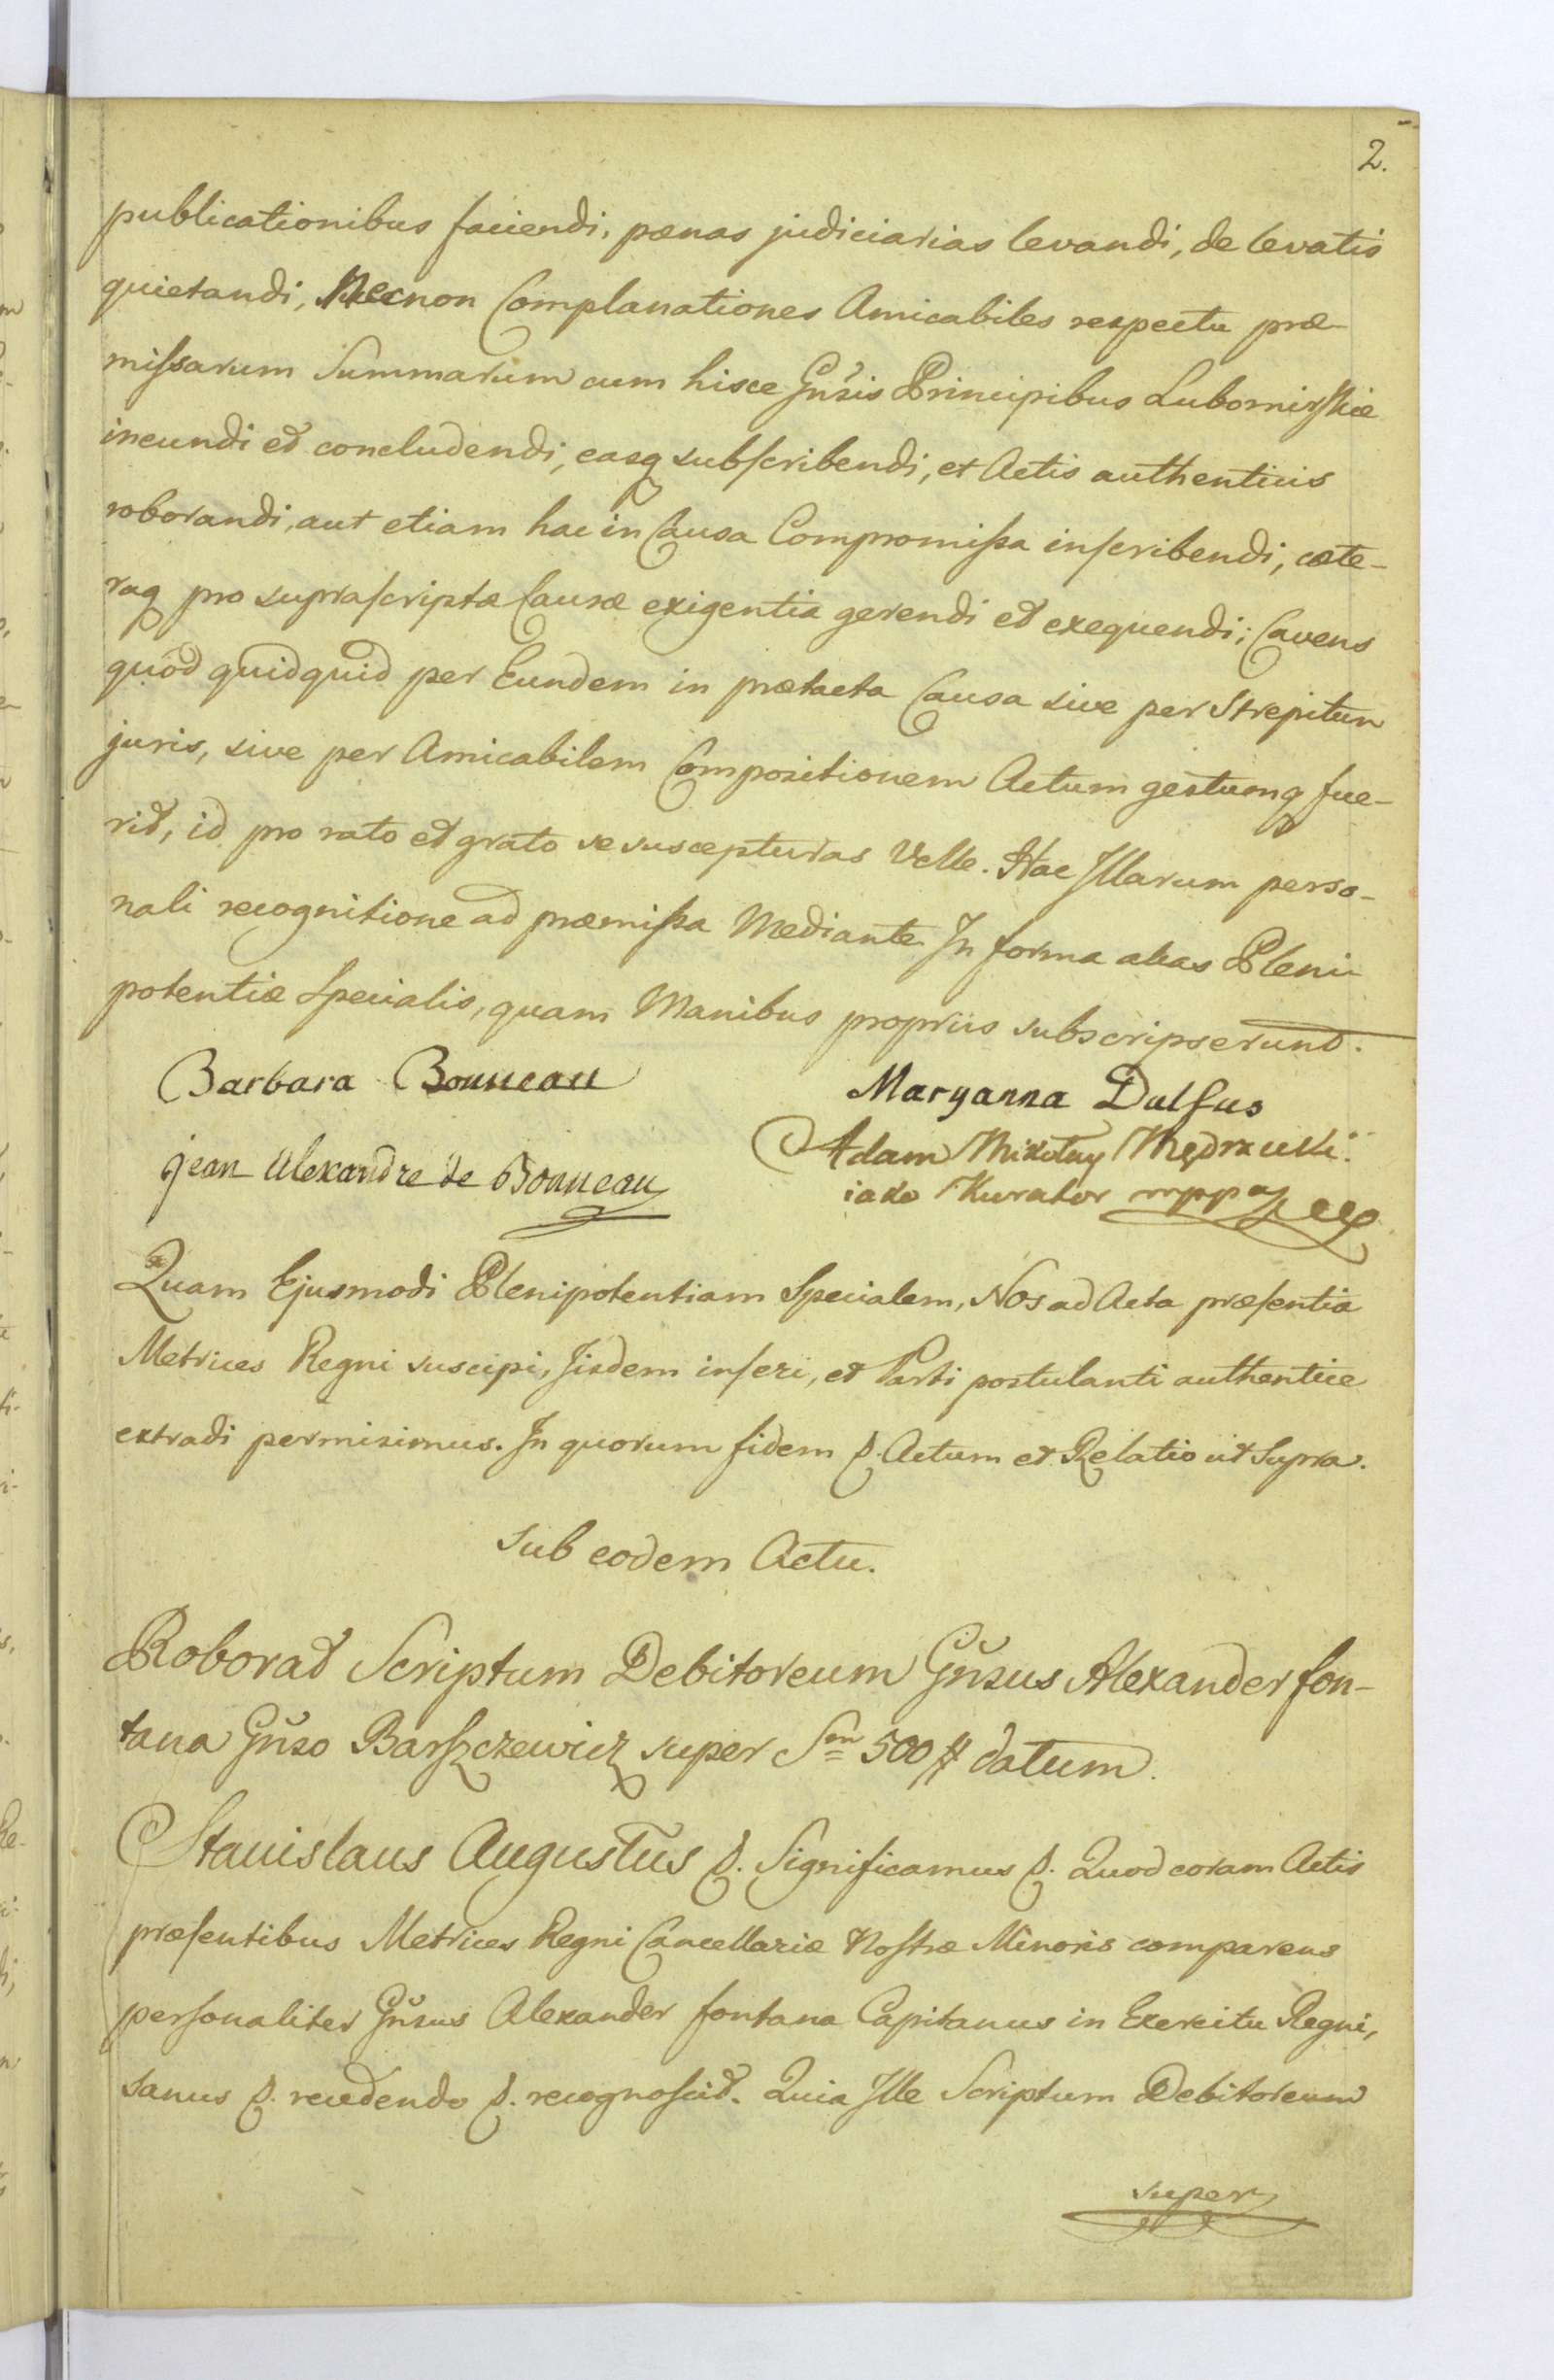 2.
publicationibus faciendi, pœnas judiciarias levandi, de levatis
quietandi, Necnon Complanationes Amicabiles respectu præ-
missarum Summarum cum hisce Gnŝis Principibus Lubomirskie
ineundi et concludendi, easq subscribendi, et Actis authenticis
roborandi, aut etiam hac in Causa Compromissa inscribendi, cæte-
raq pro suprascriptæ Causæ exigentia gerendi et exequendi; Cavens
quod quidquid per Eundem in prætacta Causa sive per Strepitum
juris, sive per Amicabilem Compositionem Actum gestumq fue-
rit, id pro rato et grato se suscepturas Velle. Hac Illarum perso-
nali recognitione ad præmissa Mediante. In forma alias Pleni-
potentiæ Specialis, quam Manibus propriis subscripserunt.
Barbara Bonneau
Maryanna Dulfus
Jean Alexandre de Bonneau
Adam Mikołay Mędrzecki
iako Kurator mppa
Quam Ejusmodi Plenipotentiam Specialem, Nos ad Acta præsentia
Metrices Regni suscipi, Iisdem inseri, et Parti postulanti authentice
extradi permisimus. In quorum fidem &. Actum et Relatio ut Supra.
Sub eodem Actu.
Roborat Scriptum Debitoreum Gnŝus Alexander fon-
tana Gnŝo Barszczewicz super Sm 500 # datum.
Stanislaus Augustus &. Significamus &. Quod coram Actis
præsentibus Metrices Regni Cancellariæ Nostræ Minoris comparens
personaliter Gnŝus Alexander fontana Capitanus in Exercitu Regni,
sanus &. recedendo &. recognoscit. Quia Ille Scriptum Debitoreum
super